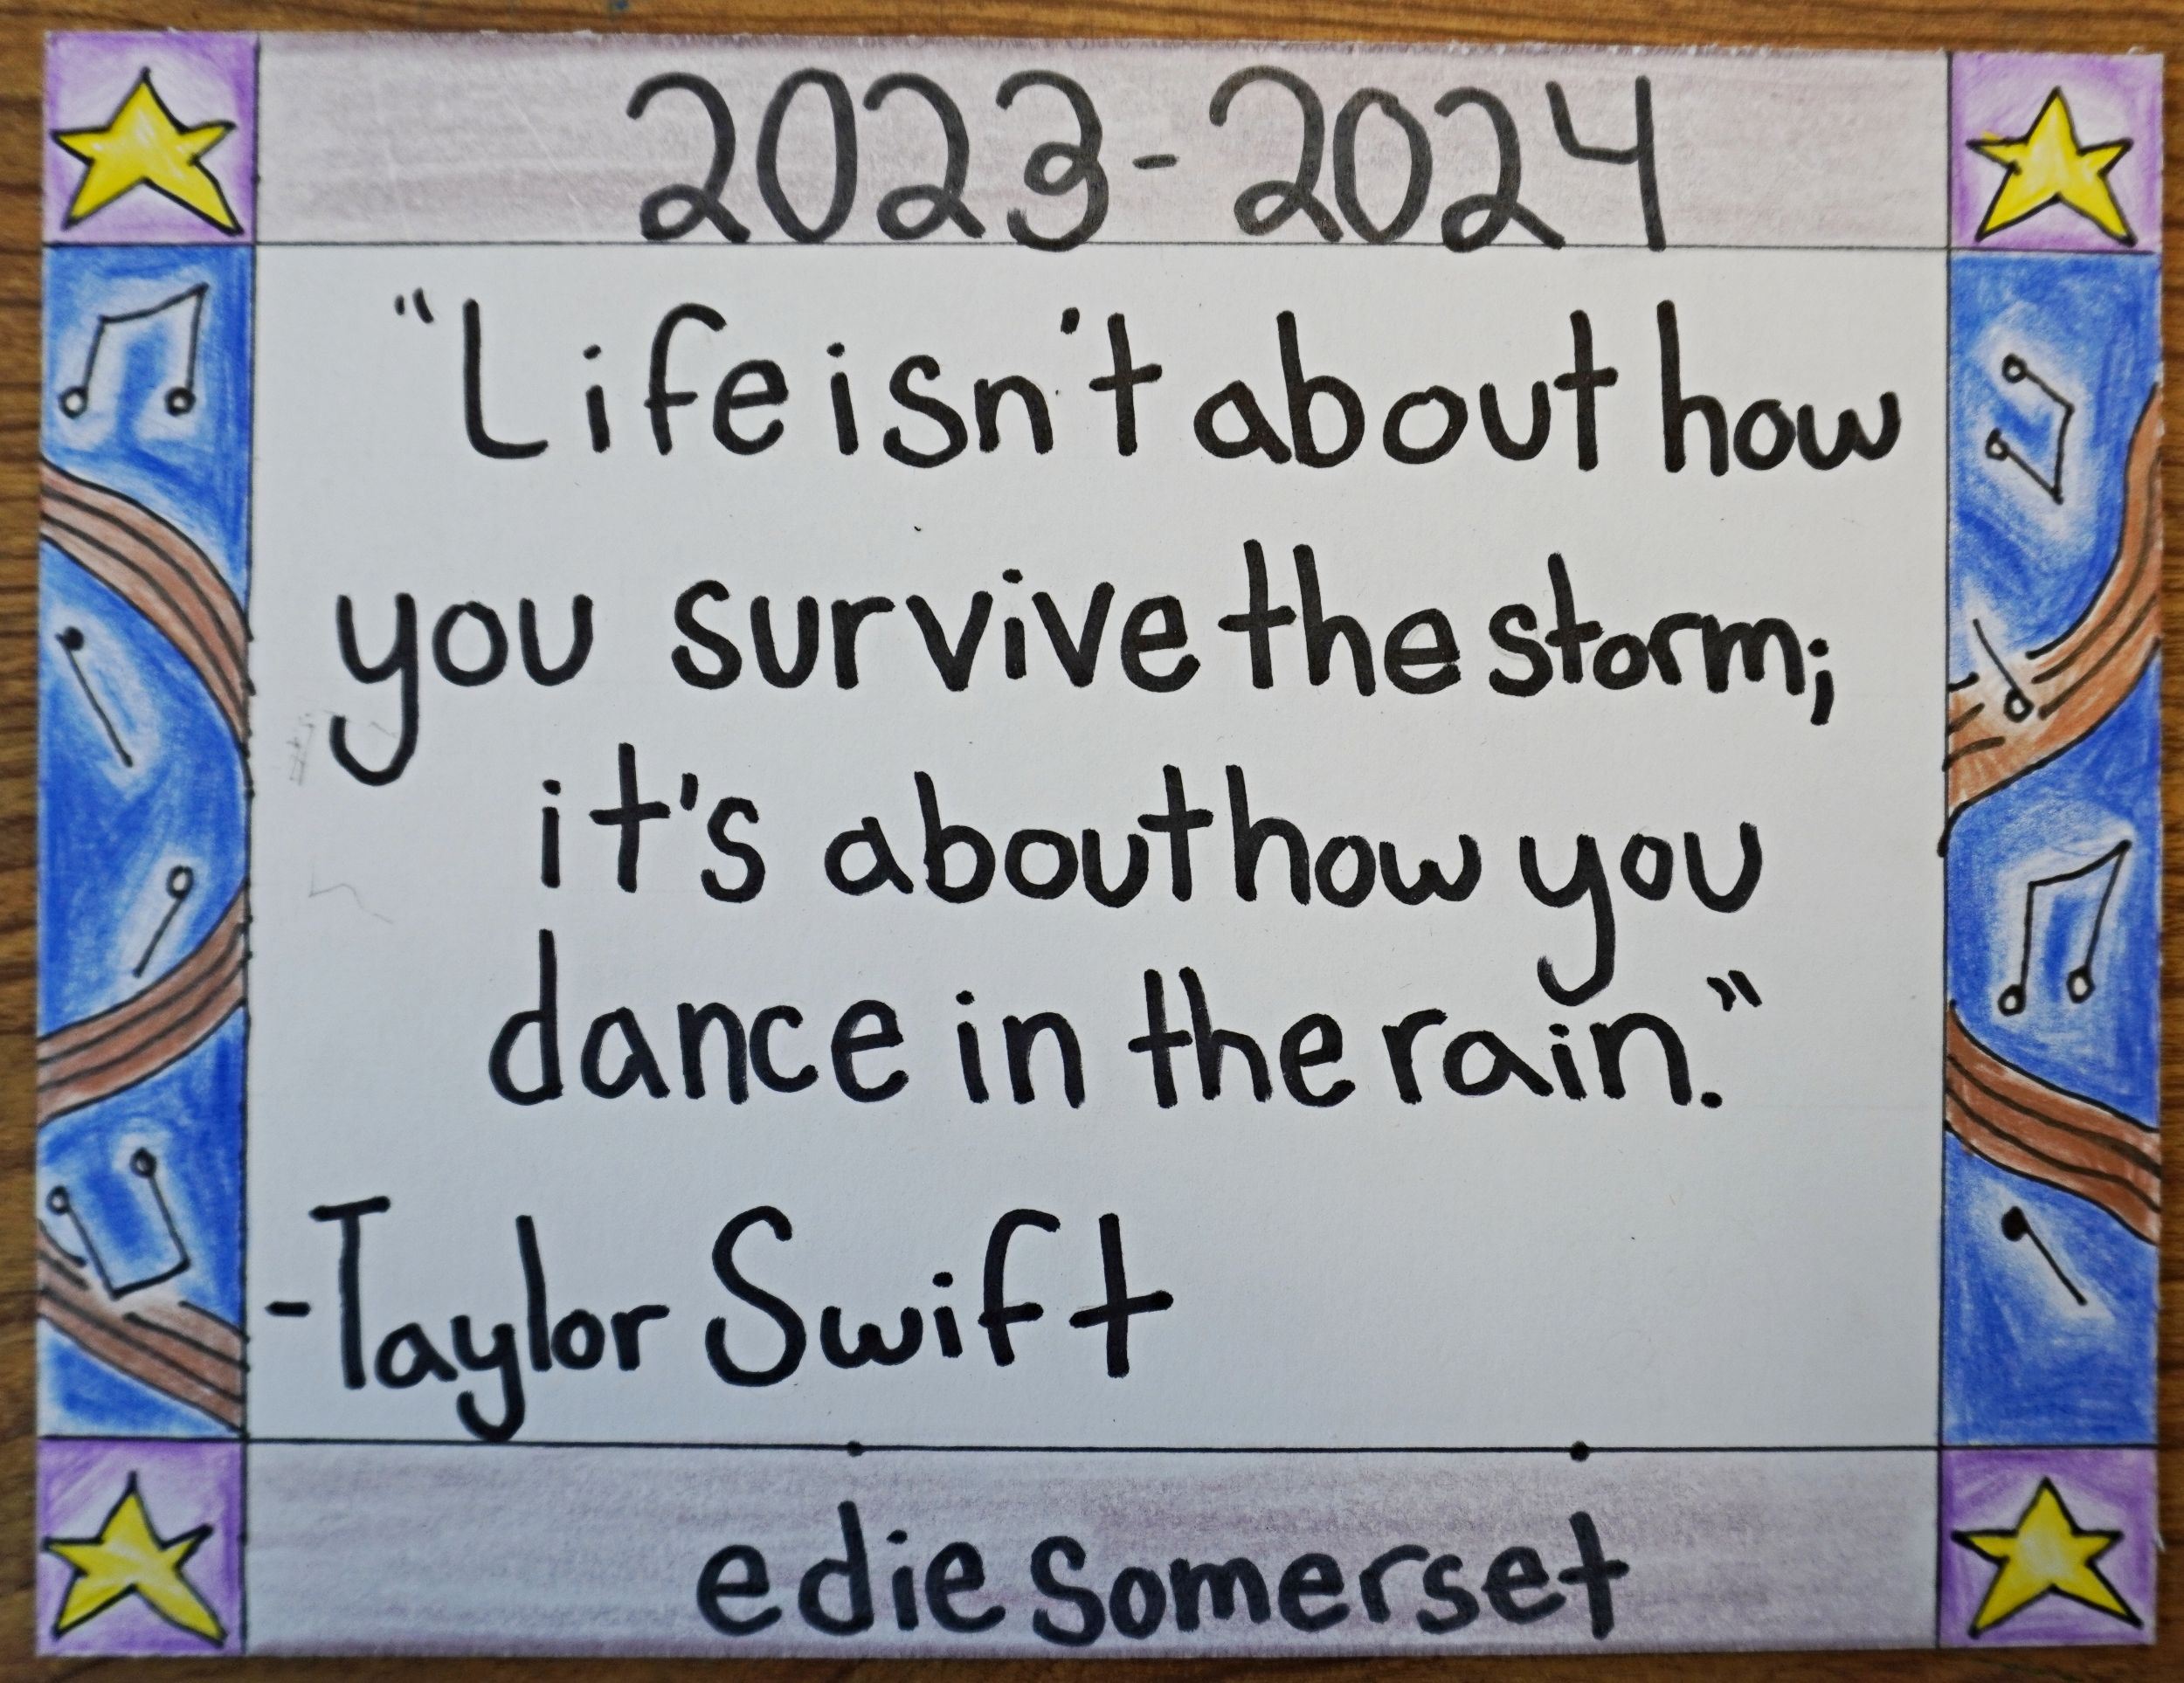 2023-2024
"Life isn't about how
you survive the storm;
it's about how you
dance in the rain."
-Taylor Swift
edie somerset